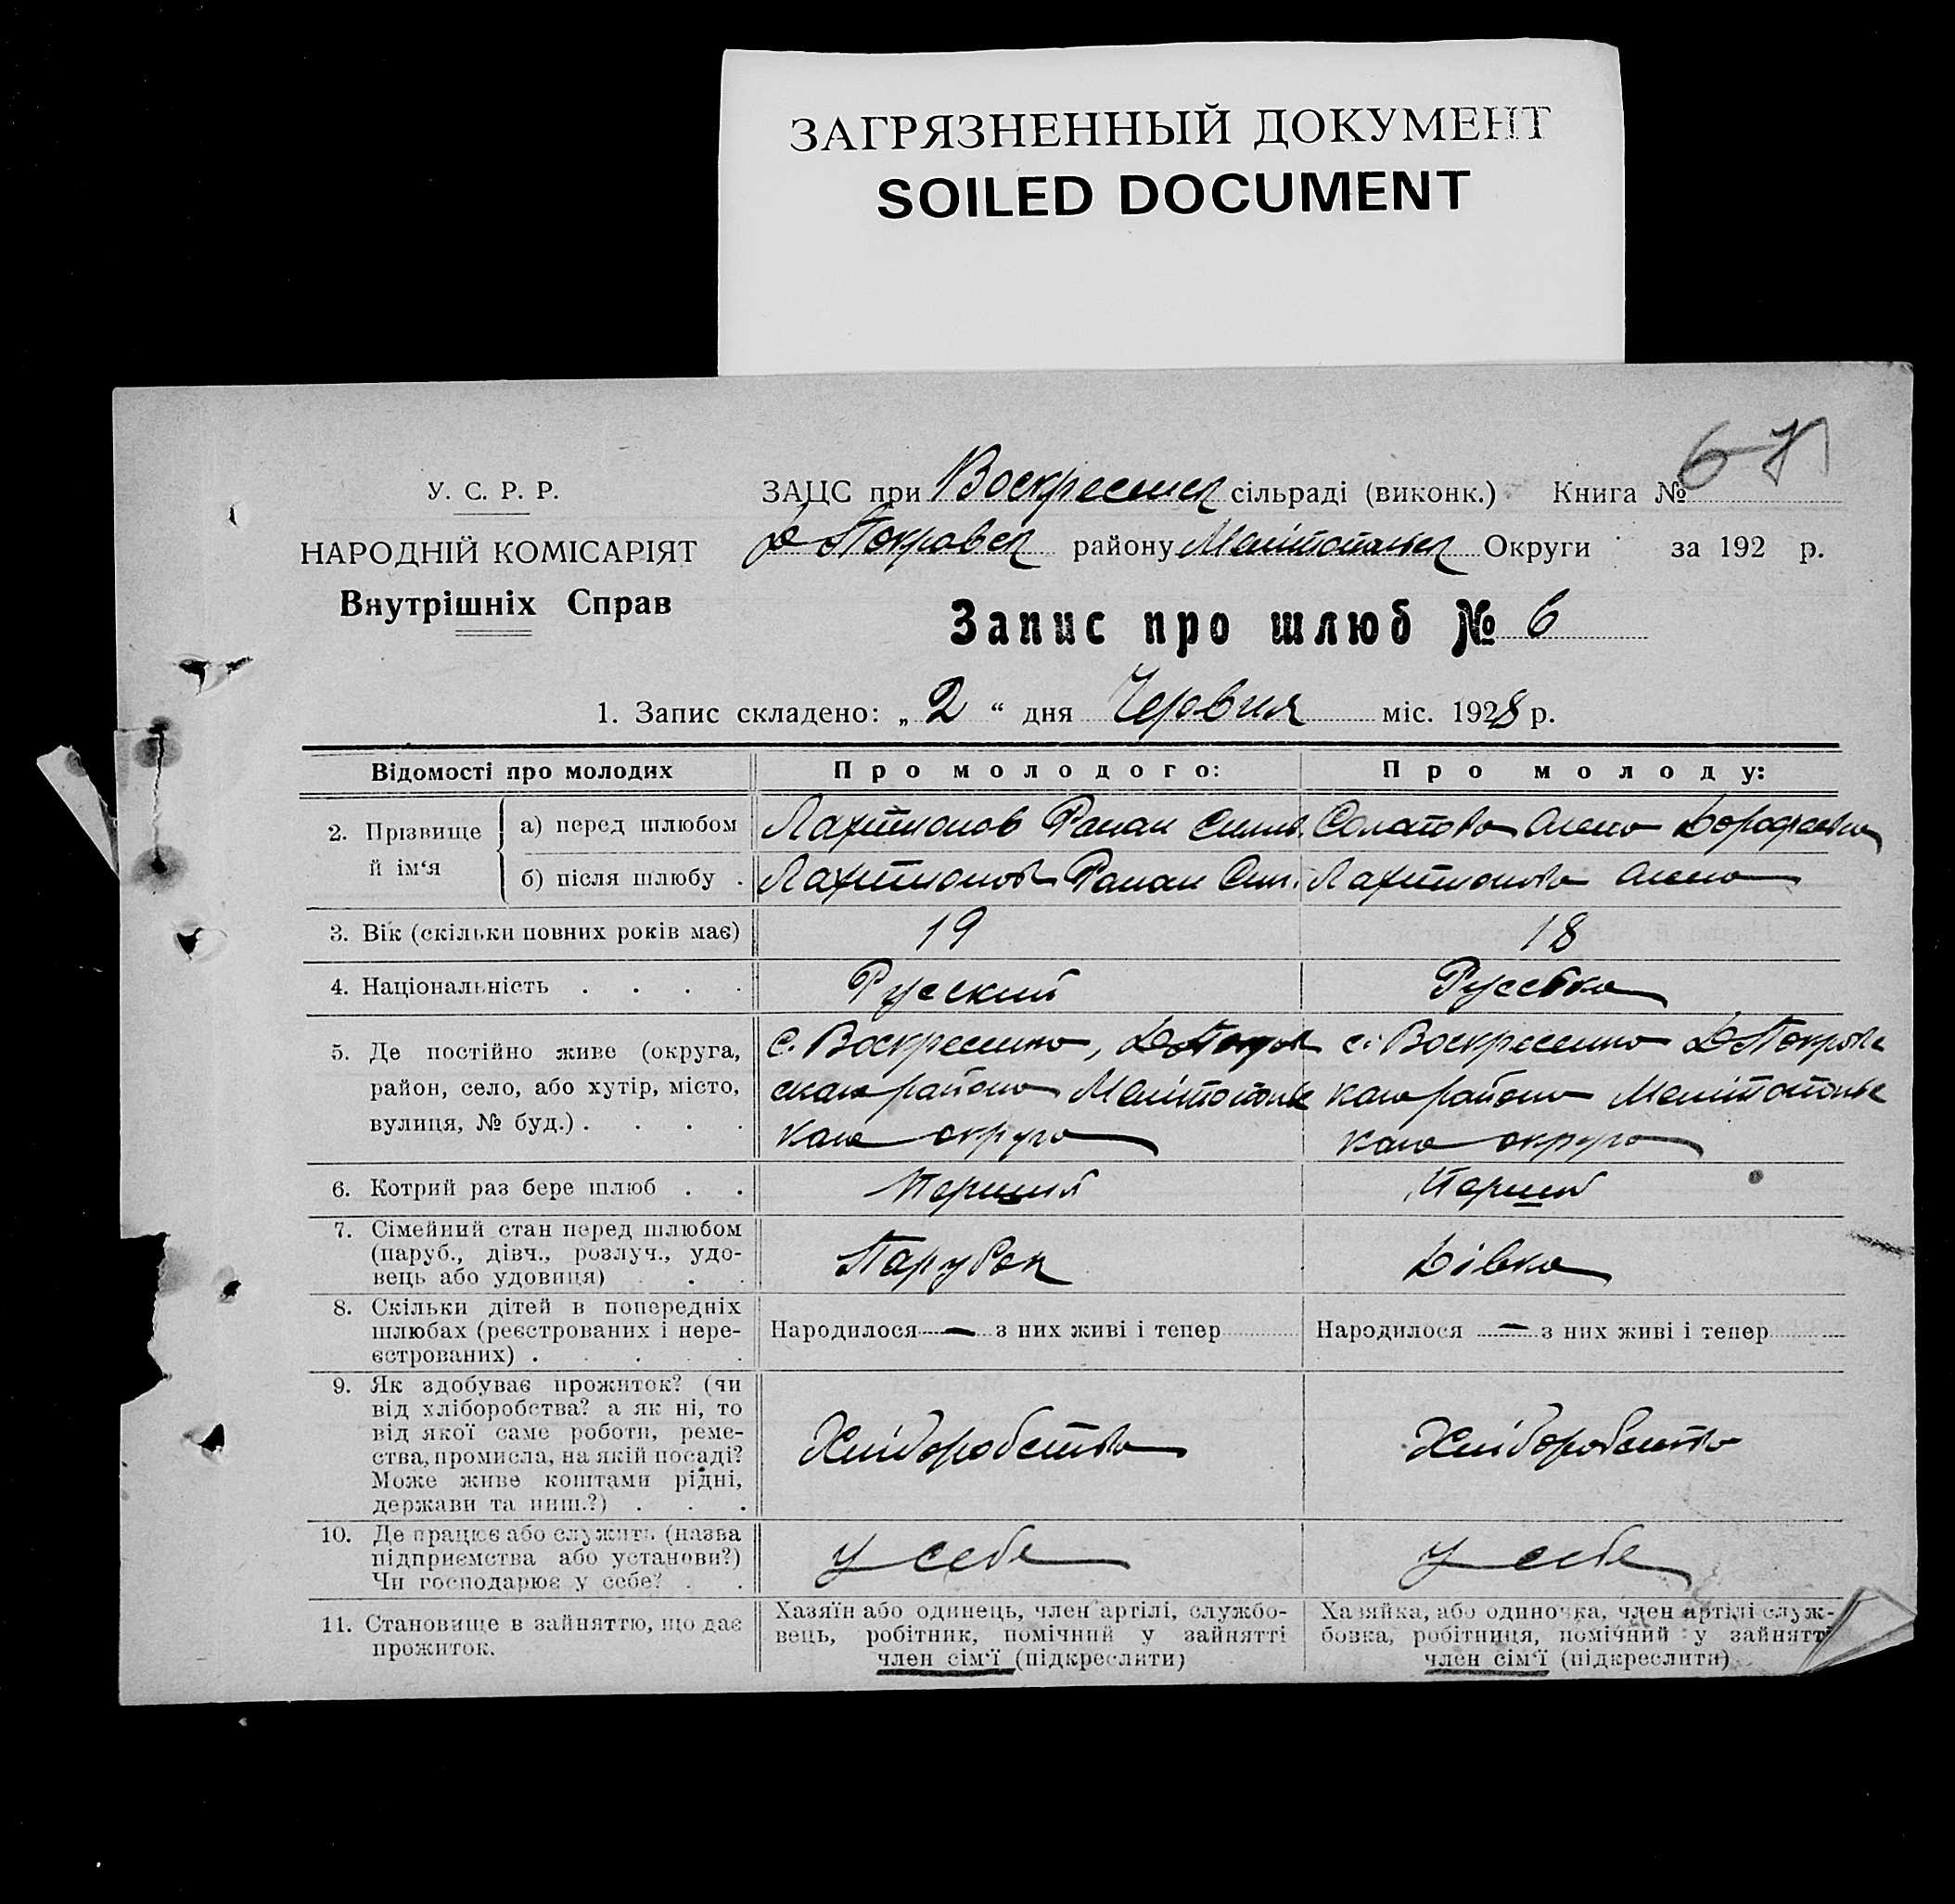 ЗАГРЯЗНЕННЫЙ ДОКУМЕНТ
SOILED DOCUMENT
У. С. Р. Р.
НАРОДНІЙ КОМІСАРІЯТ
Внутрішніх Справ
ЗАЦС при Воскресенск сільраді (виконк.) Книга №
Покровск району Мелітопільск Округи за 192 р.
Запис про шлюб № 6
1. Запис складено: „ 2 “ дня Червня міс. 1928 р.
Відомості про молодих Про молодого: Про молоду:
2. Прізвище й ім‘я
а) перед шлюбом Роман Солатова Дорофеевна
б) після шлюбу . Роман
3. Вік (скільки повних років має) 19 18
4. Національність . . . . Русский
5. Де постійно живе (округа, с. Воскресенка, с. Воскресенка Д Покровс
район, село, або хутір, місто, района Мелітопольс района Мелітопольс
вулиця, № буд.) . . . . . округа округа
6. Котрий раз бере шлюб . . Перший Перший
7. Сімейний стан перед шлюбом
(паруб., дівч., розлуч., удо- Парубок Дівка
вець або удовиця) . .
8. Скільки дітей в попередніх
шлюбах (реєстрованих і нере- Народилося — з них живі і тепер Народилося — з них живі і тепер
єстрованих) . . . . . .
9. Як здобуває прожиток? (чи
від хліборобства? а як ні, то
від якої саме роботи, реме- Хліборобство Хліборобство
ства, промисла, на якій посаді?
Може живе коштами рідні,
держави та инш.?) . . .
10. Де працює або служить (назва
підприємства або установи?) у себе у себе
Чи господарює у себе? . .
11. Становище в зайняттю, що дає Хазяїн або одинець, член артілі, службо- Хазяйка, або одиночка, член артілі служ-
прожиток. вець, робітник, помічний у зайнятті бовка, робітниця, помічний у зайнятті
член сім‘ї (підкреслити) член сім‘ї (підкреслити)